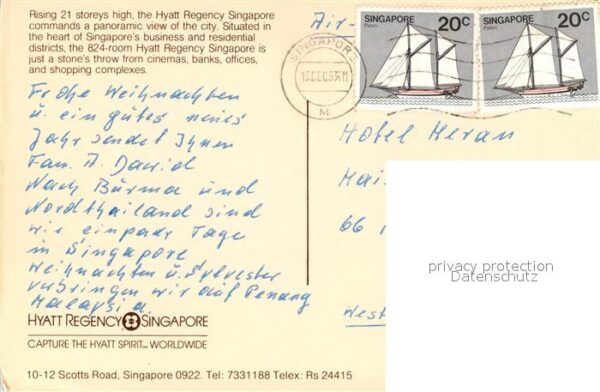 Rising 21 storeys high, the Hyatt Regency Singapore
commands a panoramic view of the city. Situated in
the heart of Singapore's business and residential
districts, the 824-room Hyatt Regency Singapore is
just a stone's throw from cinemas, banks, offices,
and shopping complexes.
Frohe Weihnachten
u. ein gutes neues
Jahr sendet Ihnen
Fam. A. David
Nach Burma und
Nordthailand sind
wir ein paar Tage
in Singapore
Weihnachten u. Sylvester
verbringen wir auf Penang
Malaysia.
HYATT REGENCY SINGAPORE
CAPTURE THE HYATT SPIRIT℠ WORLDWIDE
10-12 Scotts Road, Singapore 0922. Tel: 7331188 Telex: Rs 24415
Air-
SINGAPORE
M
SINGAPORE 20c
Palari
SINGAPORE 20c
Palari
Hotel Meran
66
West
privacy protection
Datenschutz